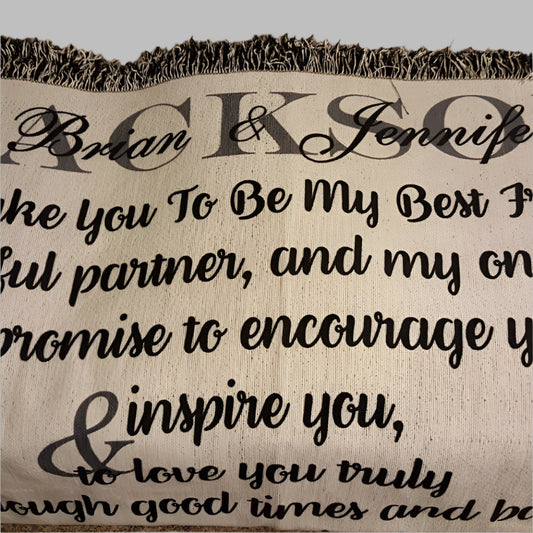 ACKSO
Brian & Jennife
ke You To Be My Best Fr
ful partner, and my on
promise to encourage y
& inspire you,
to love you truly
ough good times and ba